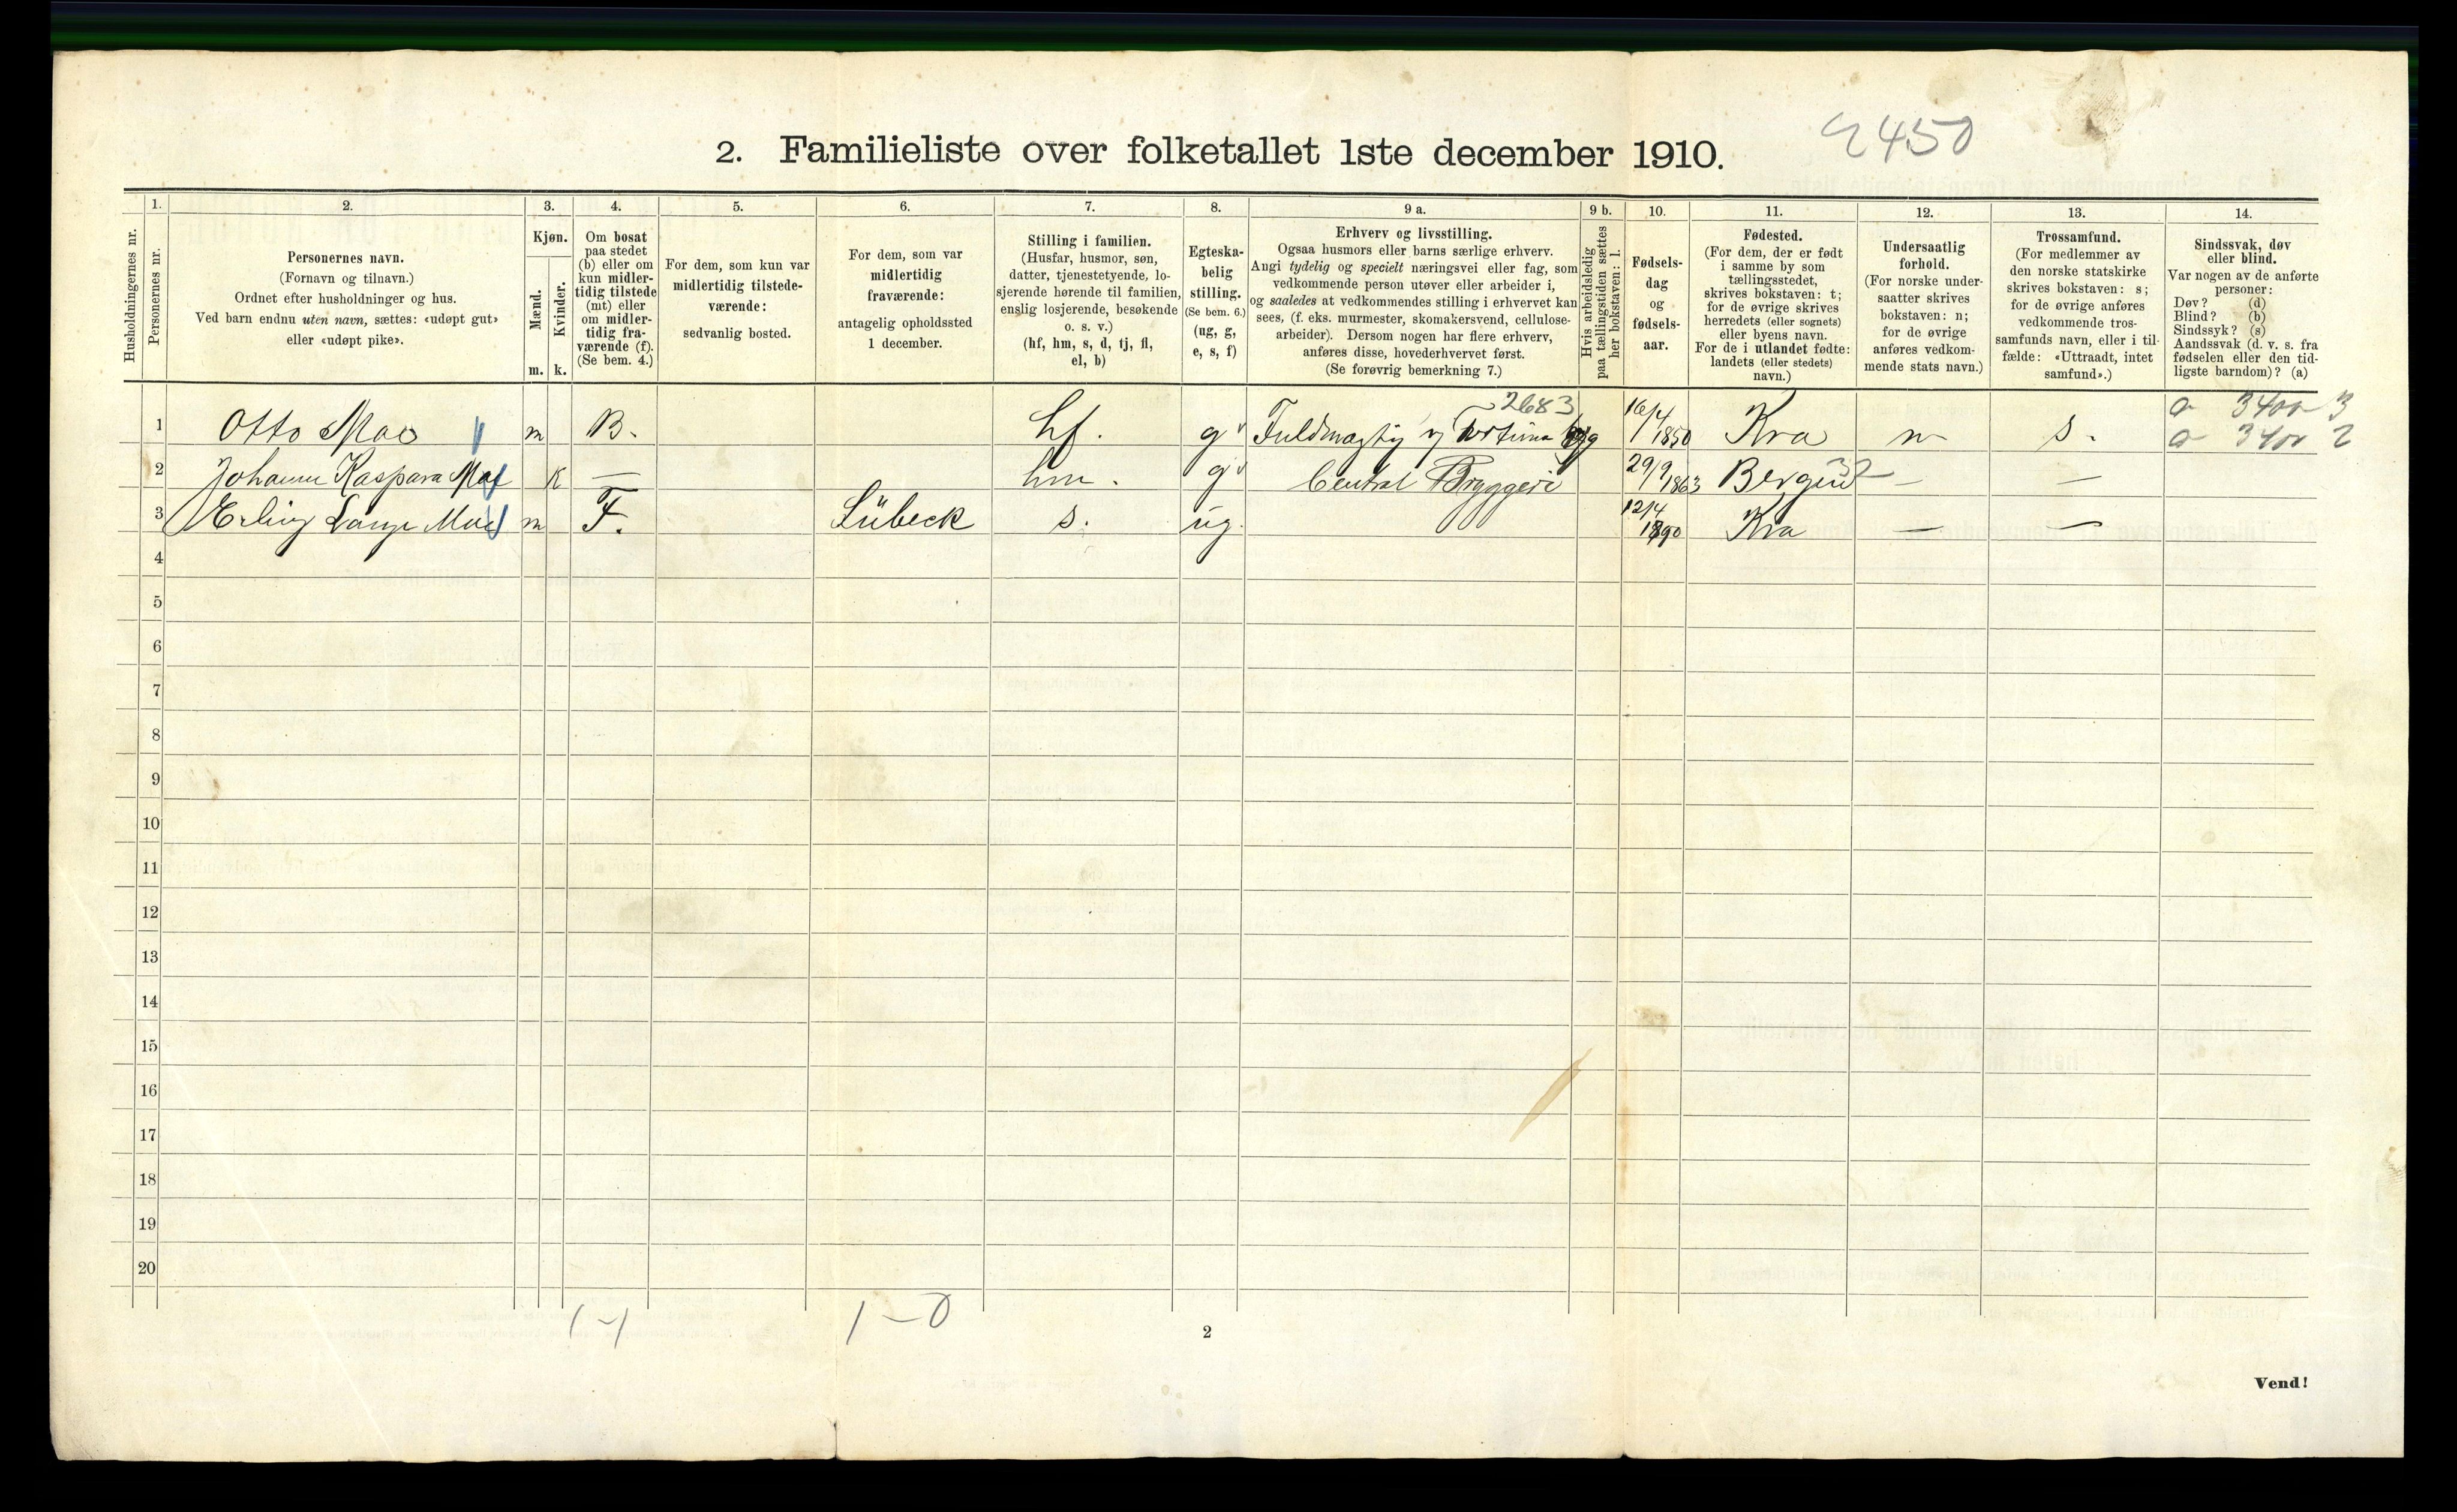 2. Familieliste over folketallet 1ste december 1910.
2450
Husholdningernes nr.
1.
Personernes nr.
2.
Personernes navn.
(Fornavn og tilnavn.)
Ordnet efter husholdninger og hus.
Ved barn endnu uten navn, sættes: «udøpt gut»
eller «udøpt pike».
3.
Kjøn.
Mænd.
Kvinder.
m. k.
4.
Om bosat
paa stedet
(b) eller om
kun midler-
tidig tilstede
(mt) eller
om midler-
tidig fra-
værende (f).
(Se bem. 4.)
5.
For dem, som kun var
midlertidig tilstede-
værende:
sedvanlig bosted.
6.
For dem, som var
midlertidig
fraværende:
antagelig opholdssted
1 december.
7.
Stilling i familien.
(Husfar, husmor, søn,
datter, tjenestetyende, lo-
sjerende hørende til familien,
enslig losjerende, besøkende
o. s. v.)
(hf, hm, s, d, tj, fl,
el, b)
8.
Egteska-
belig
stilling.
(Se bem. 6.)
(ug, g,
e, s, f)
9 a.
Erhverv og livsstilling.
Ogsaa husmors eller barns særlige erhverv.
Angi tydelig og specielt næringsvei eller fag, som
vedkommende person utøver eller arbeider i,
og saaledes at vedkommendes stilling i erhvervet kan
sees, (f. eks. murmester, skomakersvend, cellulose-
arbeider). Dersom nogen har flere erhverv,
anføres disse, hovederhvervet først.
(Se forøvrig bemerkning 7.)
9 b.
Hvis arbeidsledig
paa tællingstiden sættes
her bokstaven: l.
10.
Fødsels-
dag
og
fødsels-
aar.
11.
Fødested.
(For dem, der er født
i samme by som
tællingsstedet,
skrives bokstaven: t;
for de øvrige skrives
herredets (eller sognets)
eller byens navn.
For de i utlandet fødte:
landets (eller stedets)
navn.)
12.
Undersaatlig
forhold.
(For norske under-
saatter skrives
bokstaven: n;
for de øvrige
anføres vedkom-
mende stats navn.)
13.
Trossamfund.
(For medlemmer av
den norske statskirke
skrives bokstaven: s;
for de øvrige anføres
vedkommende tros-
samfunds navn, eller i til-
fælde: «Uttraadt, intet
samfund».)
14.
Sindssvak, døv
eller blind.
Var nogen av de anførte
personer:
Døv? (d)
Blind? (b)
Sindssyk? (s)
Aandssvak (d. v. s. fra
fødselen eller den tid-
ligste barndom)? (a)
2683
1 Otto Moe m B. hf. g Fuldmægtig v Fortuna 16/4 1850 Kra n s.
2 Johanne Kaspara Moe k — hm. g Central Bryggeri 29/9 1863 Bergen — —
3 Erling Lange Moe m F. Lübeck s. ug. 12/4 1890 Kra — —
4
5
6
7
8
9
10
11
12
13
14
15
16
17
18
19
20
1-1 1-0
2
Vend!